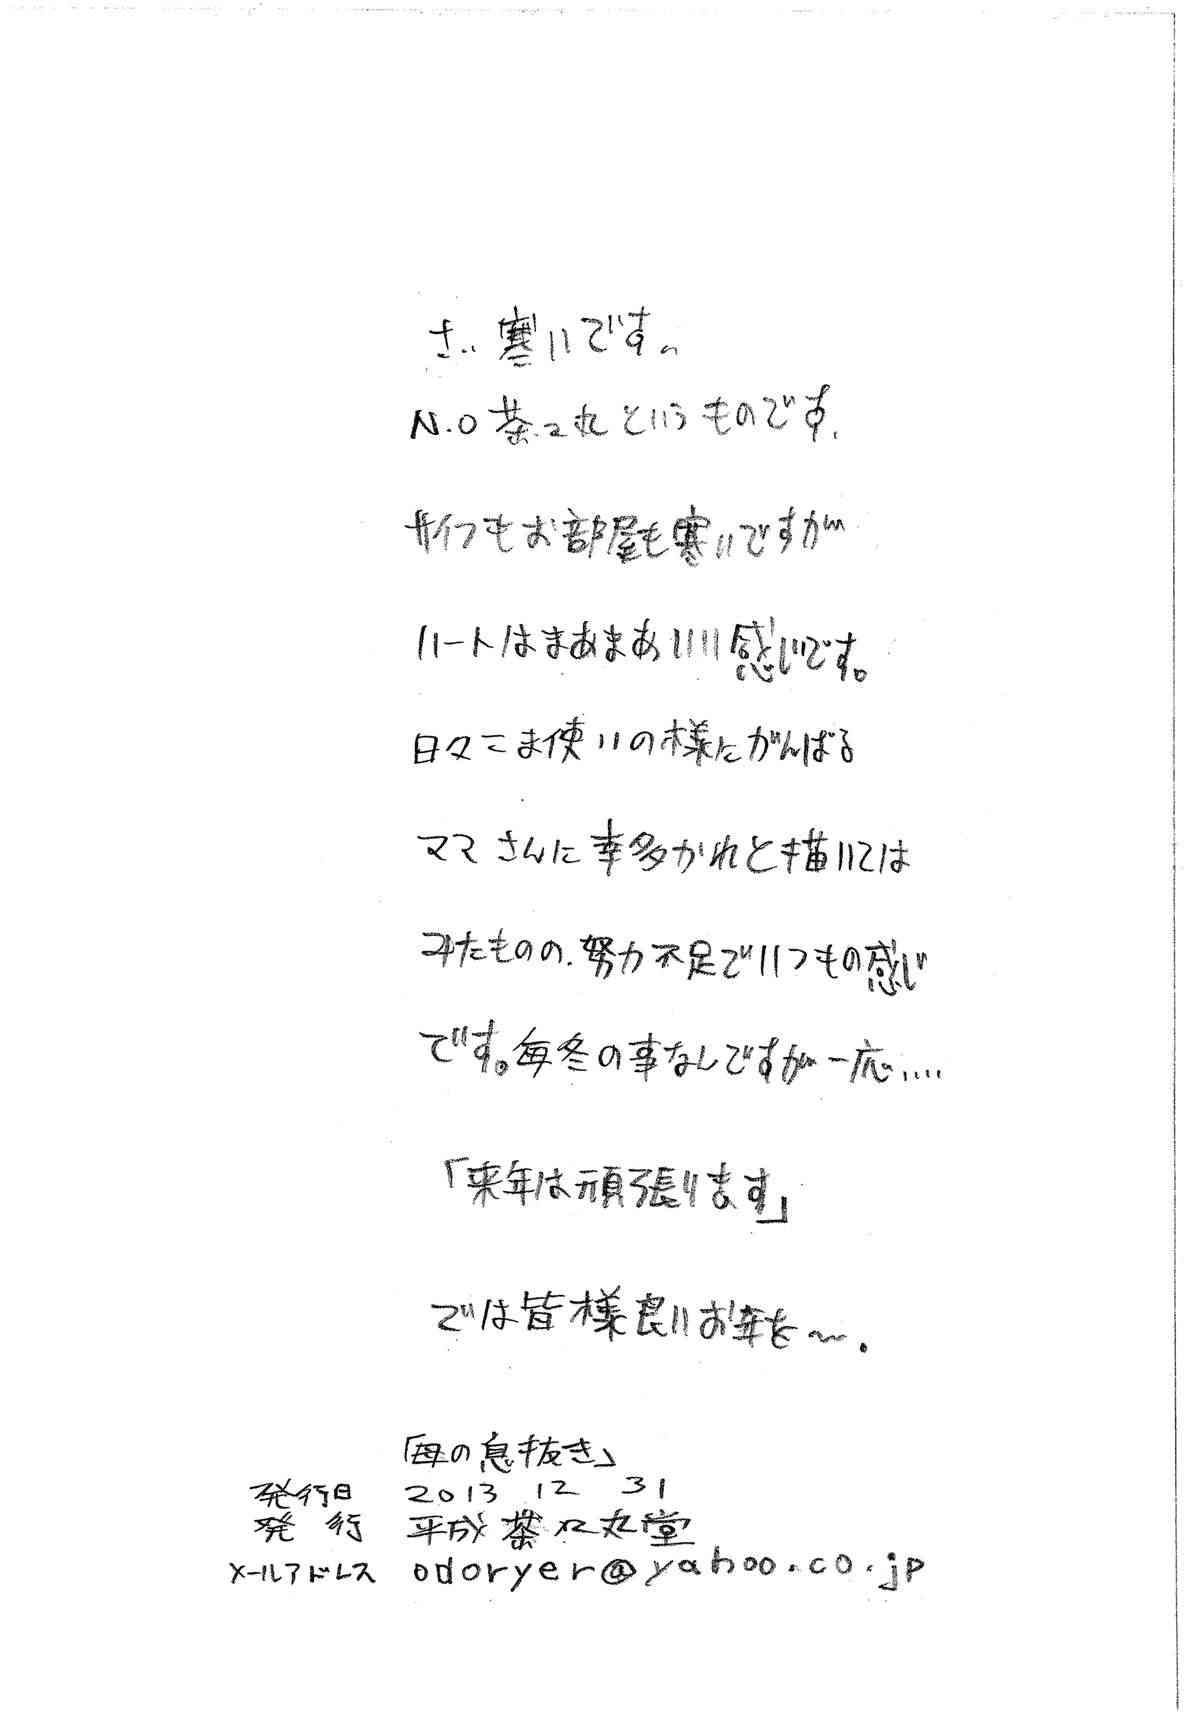 さ、寒いです。
N.O茶々丸というものです。
サイフもお部屋も寒いですが
ハートはまあまあいい感じです。
日々こま使いの様にがんばる
ママさんに幸多かれと描いては
みたものの、努力不足でいつもの感じ
です。毎冬の事なんですが一応....
「来年は頑張ります」
では皆様良いお年を〜.
「母の息抜き」
発行日 2013 12 31
発行 平成茶々丸堂
メールアドレス odoryer@yahoo.co.jp